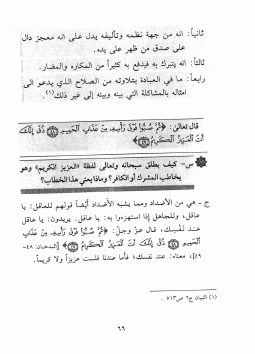 ثانياً: انه من جهة نظمه وتأليفه يدل على انه معجز دال
على صدق من ظهر على يده.
ثالثاً: انه يتبرك به فيدفع به كثيراً من المكاره والمضار.
رابعاً: ما في العبادة بتلاوته من الصلاح الذي يدعو الى
امثاله بالمشاكلة التي بينه وبينه إلى غير ذلك(١).
قال تعالى: ﴿ثُمَّ صُبُّوا فَوْقَ رَأْسِهِ مِنْ عَذَابِ الْحَمِيمِ ﴿٤٨﴾ ذُقْ إِنَّكَ
أَنتَ الْعَزِيزُ الْكَرِيمُ ﴿٤٩﴾
س- كيف يطلق سبحانه وتعالى لفظة «العزيز الكريم» وهو
يخاطب المشرك أو الكافر؟ وماذا يعني هذا الخطاب؟
ج - هي من الأضداد ومما يشبه الأضداد أيضاً قولهم للعاقل: يا
عاقل، وللجاهل إذا استهزءوا به: يا عاقل. يريدون: يا عاقل
عند نفسك، قال عز وجل: ﴿ثُمَّ صُبُّوا فَوْقَ رَأْسِهِ مِنْ عَذَابِ
الْحَمِيمِ ﴿٤٨﴾ ذُقْ إِنَّكَ أَنتَ الْعَزِيزُ الْكَرِيمُ ﴿٤٩﴾ [الدخان: ٤٨-
٤٩]، معناه: عند نفسك؛ فأما عندنا فلست عزيزاً ولا كريماً.
(١) التبيان ج٦ ص٥١٣.
٦٦